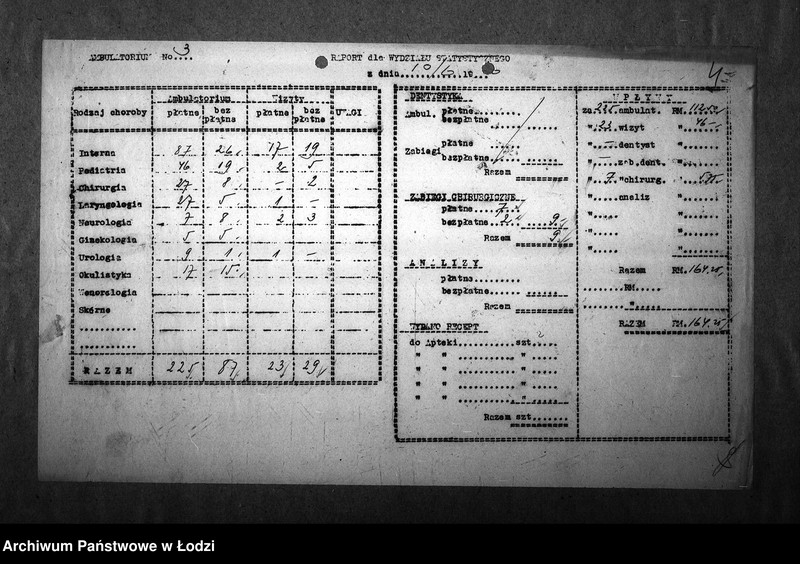 AMBULATORIUM No. 3....
RAPORT dla WYDZIAŁU STATYSTYCZNEGO
z dnia
Rodzaj choroby | Ambulatorium | Wizyty | UWAGI
płatne | bez płatne | płatne | bez płatne
Interna 87 26 17 19
Pediatria 46 19 2 5
Chirurgia 27 8 – 2
Laryngologia 27 5 1 –
Neurologia 7 8 2 3
Ginekologia 5 5
Urologia 9 1 1 –
Okulistyka 17 15
Wenerologia
Skórne
RAZEM 225 87 23 29
DENTYSTYKA
Ambul. płatne
bezpłatne
Zabiegi płatne
bezpłatne
Razem
ZABIEGI CHIRURGICZNE
płatne 7
bezpłatne 2 9
Razem 9
ANALIZY
płatne
bezpłatne
Razem
WYDANO RECEPT
do Apteki szt
" " "
" " "
" " "
" " "
Razem szt
WPŁYWY
za 225 ambulat. RM. 112.50
" 23 wizyt " 46.–
" – dentyst "
" – zab.dent. "
" 7 "chirurg. "
" analiz "
" "
" "
" "
Razem RM. 164.25
RM.
"
RAZEM RM. 164.25
Archiwum Państwowe w Łodzi